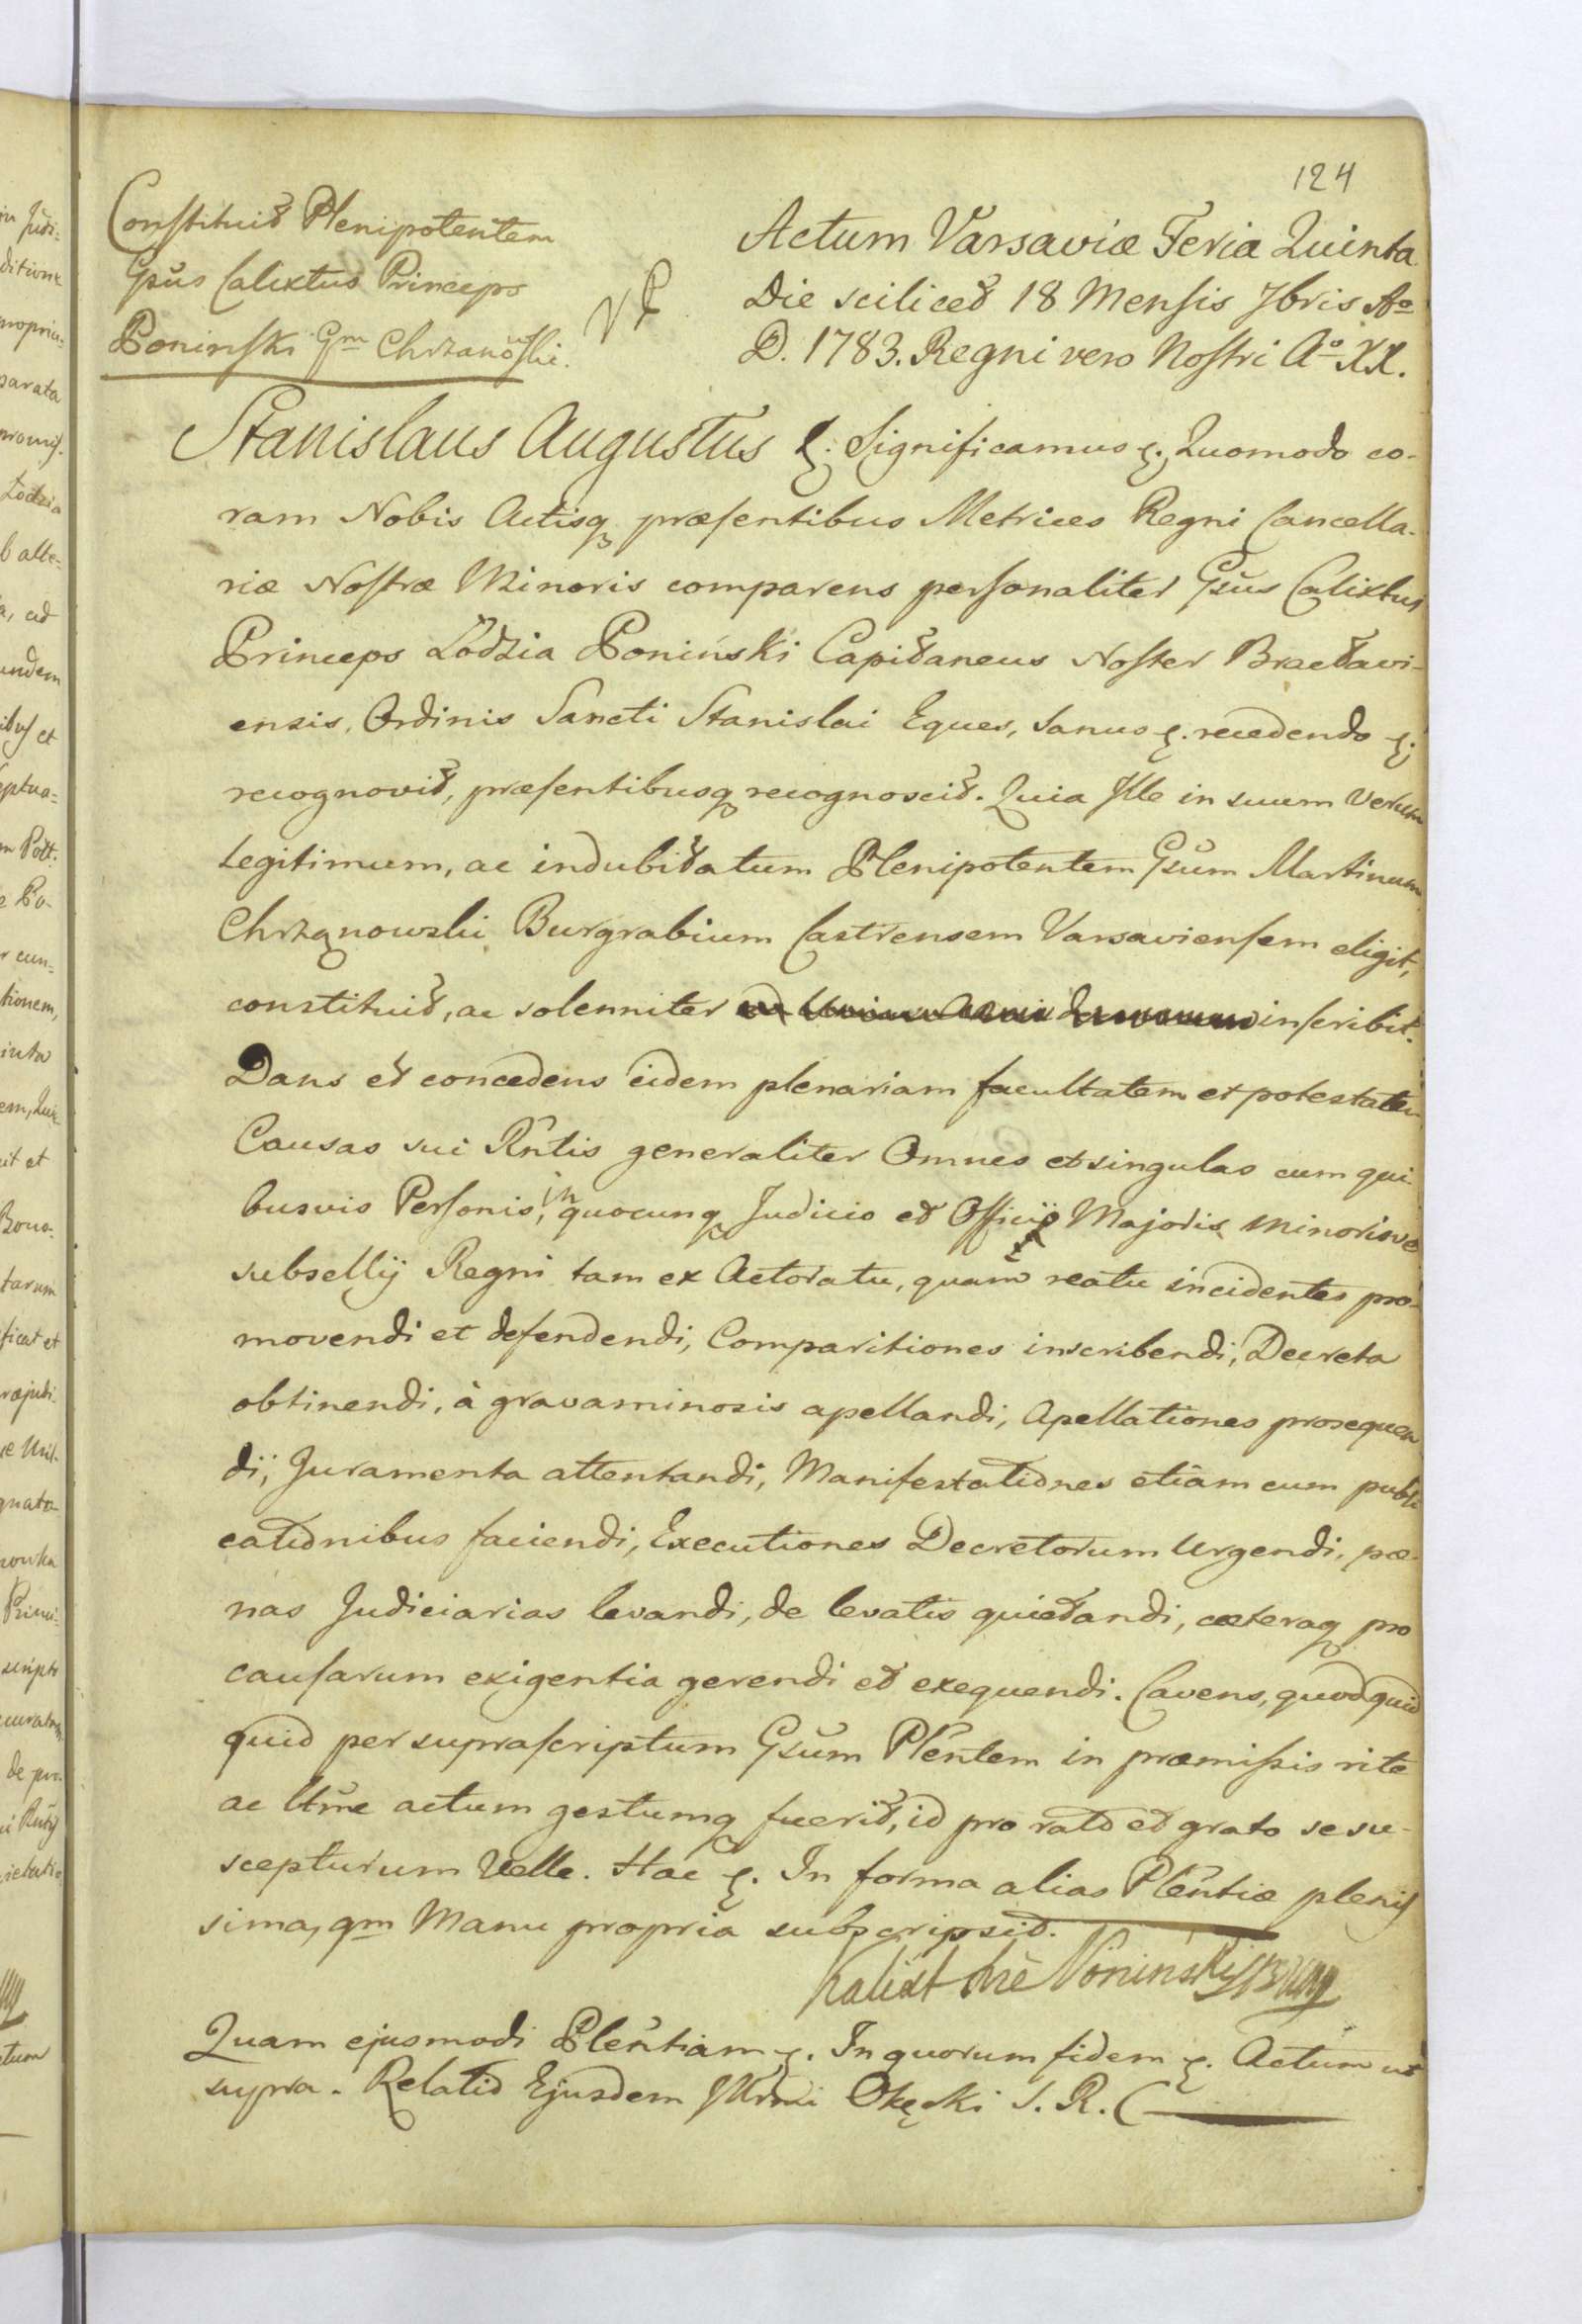 124
Constituit Plenipotentem
Gsus Calixtus Princeps
Poninski Gm Chrzanowski.
Actum Varsaviæ Feria Quinta
Die scilicet 18 Mensis 7bris Ao
D. 1783. Regni vero Nostri Ao XX.
Stanislaus Augustus &. Significamus &. Quomodo co-
ram Nobis Actisq præsentibus Metrices Regni Cancella-
riæ Nostræ Minoris comparens personaliter Gsus Calixtus
Princeps Łodzia Poniński Capitaneus Noster Bractavi-
ensis, Ordinis Sancti Stanislai Eques, Sanus &. recedendo &.
recognovit, præsentibusq recognoscit. Quia Ille in suum Verum
Legitimum, ac indubitatum Plenipotentem Gsum Martinum
Chrząnowski Burgrabium Castrensem Varsaviensem eligit,
constituit, ac solenniter inscribit.
Dans et concedens eidem plenariam facultatem et potestatem
Causas sui Rntis generaliter Omnes et singulas cum qui-
busvis Personis, in quocunq Judicio et Officio Majoris Minorisve
subsellij Regni tam ex Actoratu, quam reatu incidentes pro-
movendi et defendendi, Comparitiones inscribendi, Decreta
obtinendi, à gravaminosis apellandi, Apellationes prosequen
di, Juramenta attentandi, Manifestationes etiam cum publi
cationibus faciendi, Executiones Decretorum Urgendi, pæ-
nas Judiciarias levandi, de levatis quietandi, cæteraq pro
causarum exigentia gerendi et exequendi. Cavens, quod quid
quid per suprascriptum Gsum Plentem in præmissis rite
ac ltme actum gestumq fuerit, id pro rato et grato se su-
scepturum Velle. Hac &. In forma alias Plentiæ plenis
sima, qm Manu propria subscripsit.
Kalixt Xże Poninski
Quam ejusmodi Plentiam &. In quorum fidem &. Actum ut
supra. Relatio Ejusdem Okęcki S. R.